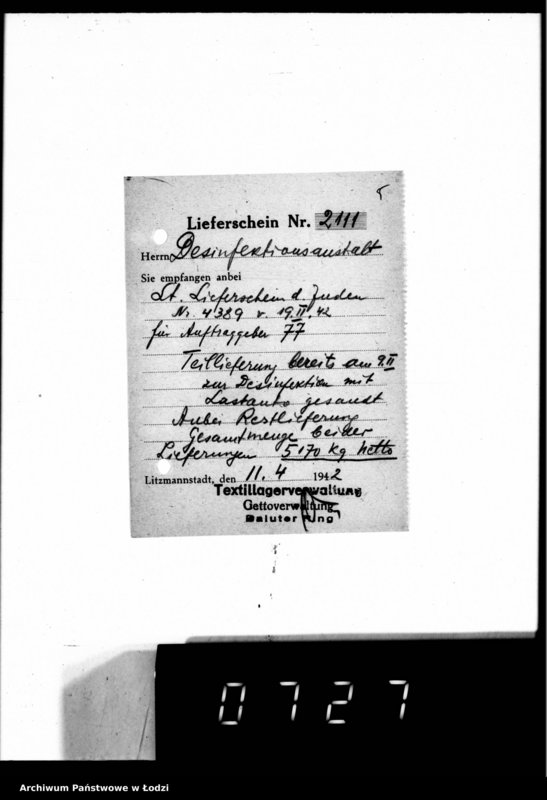 Lieferschein Nr. 2111
Herrn Desinfektionsanstalt
Sie empfangen anbei
Lt. Lieferschein d. Juden
Nr. 4389 v. 19.II.42
für Auftraggeber 77
Teillieferung bereits am 9.II
zur Desinfektion mit
Lastauto gesandt
Anbei Restlieferung
Gesamtmenge beider
Lieferungen 5170 Kg Netto
Litzmannstadt, den 11.4 1942
Textillagerverwaltung
Gettoverwaltung
Baluter Ring
0727
Archiwum Państwowe w Łodzi